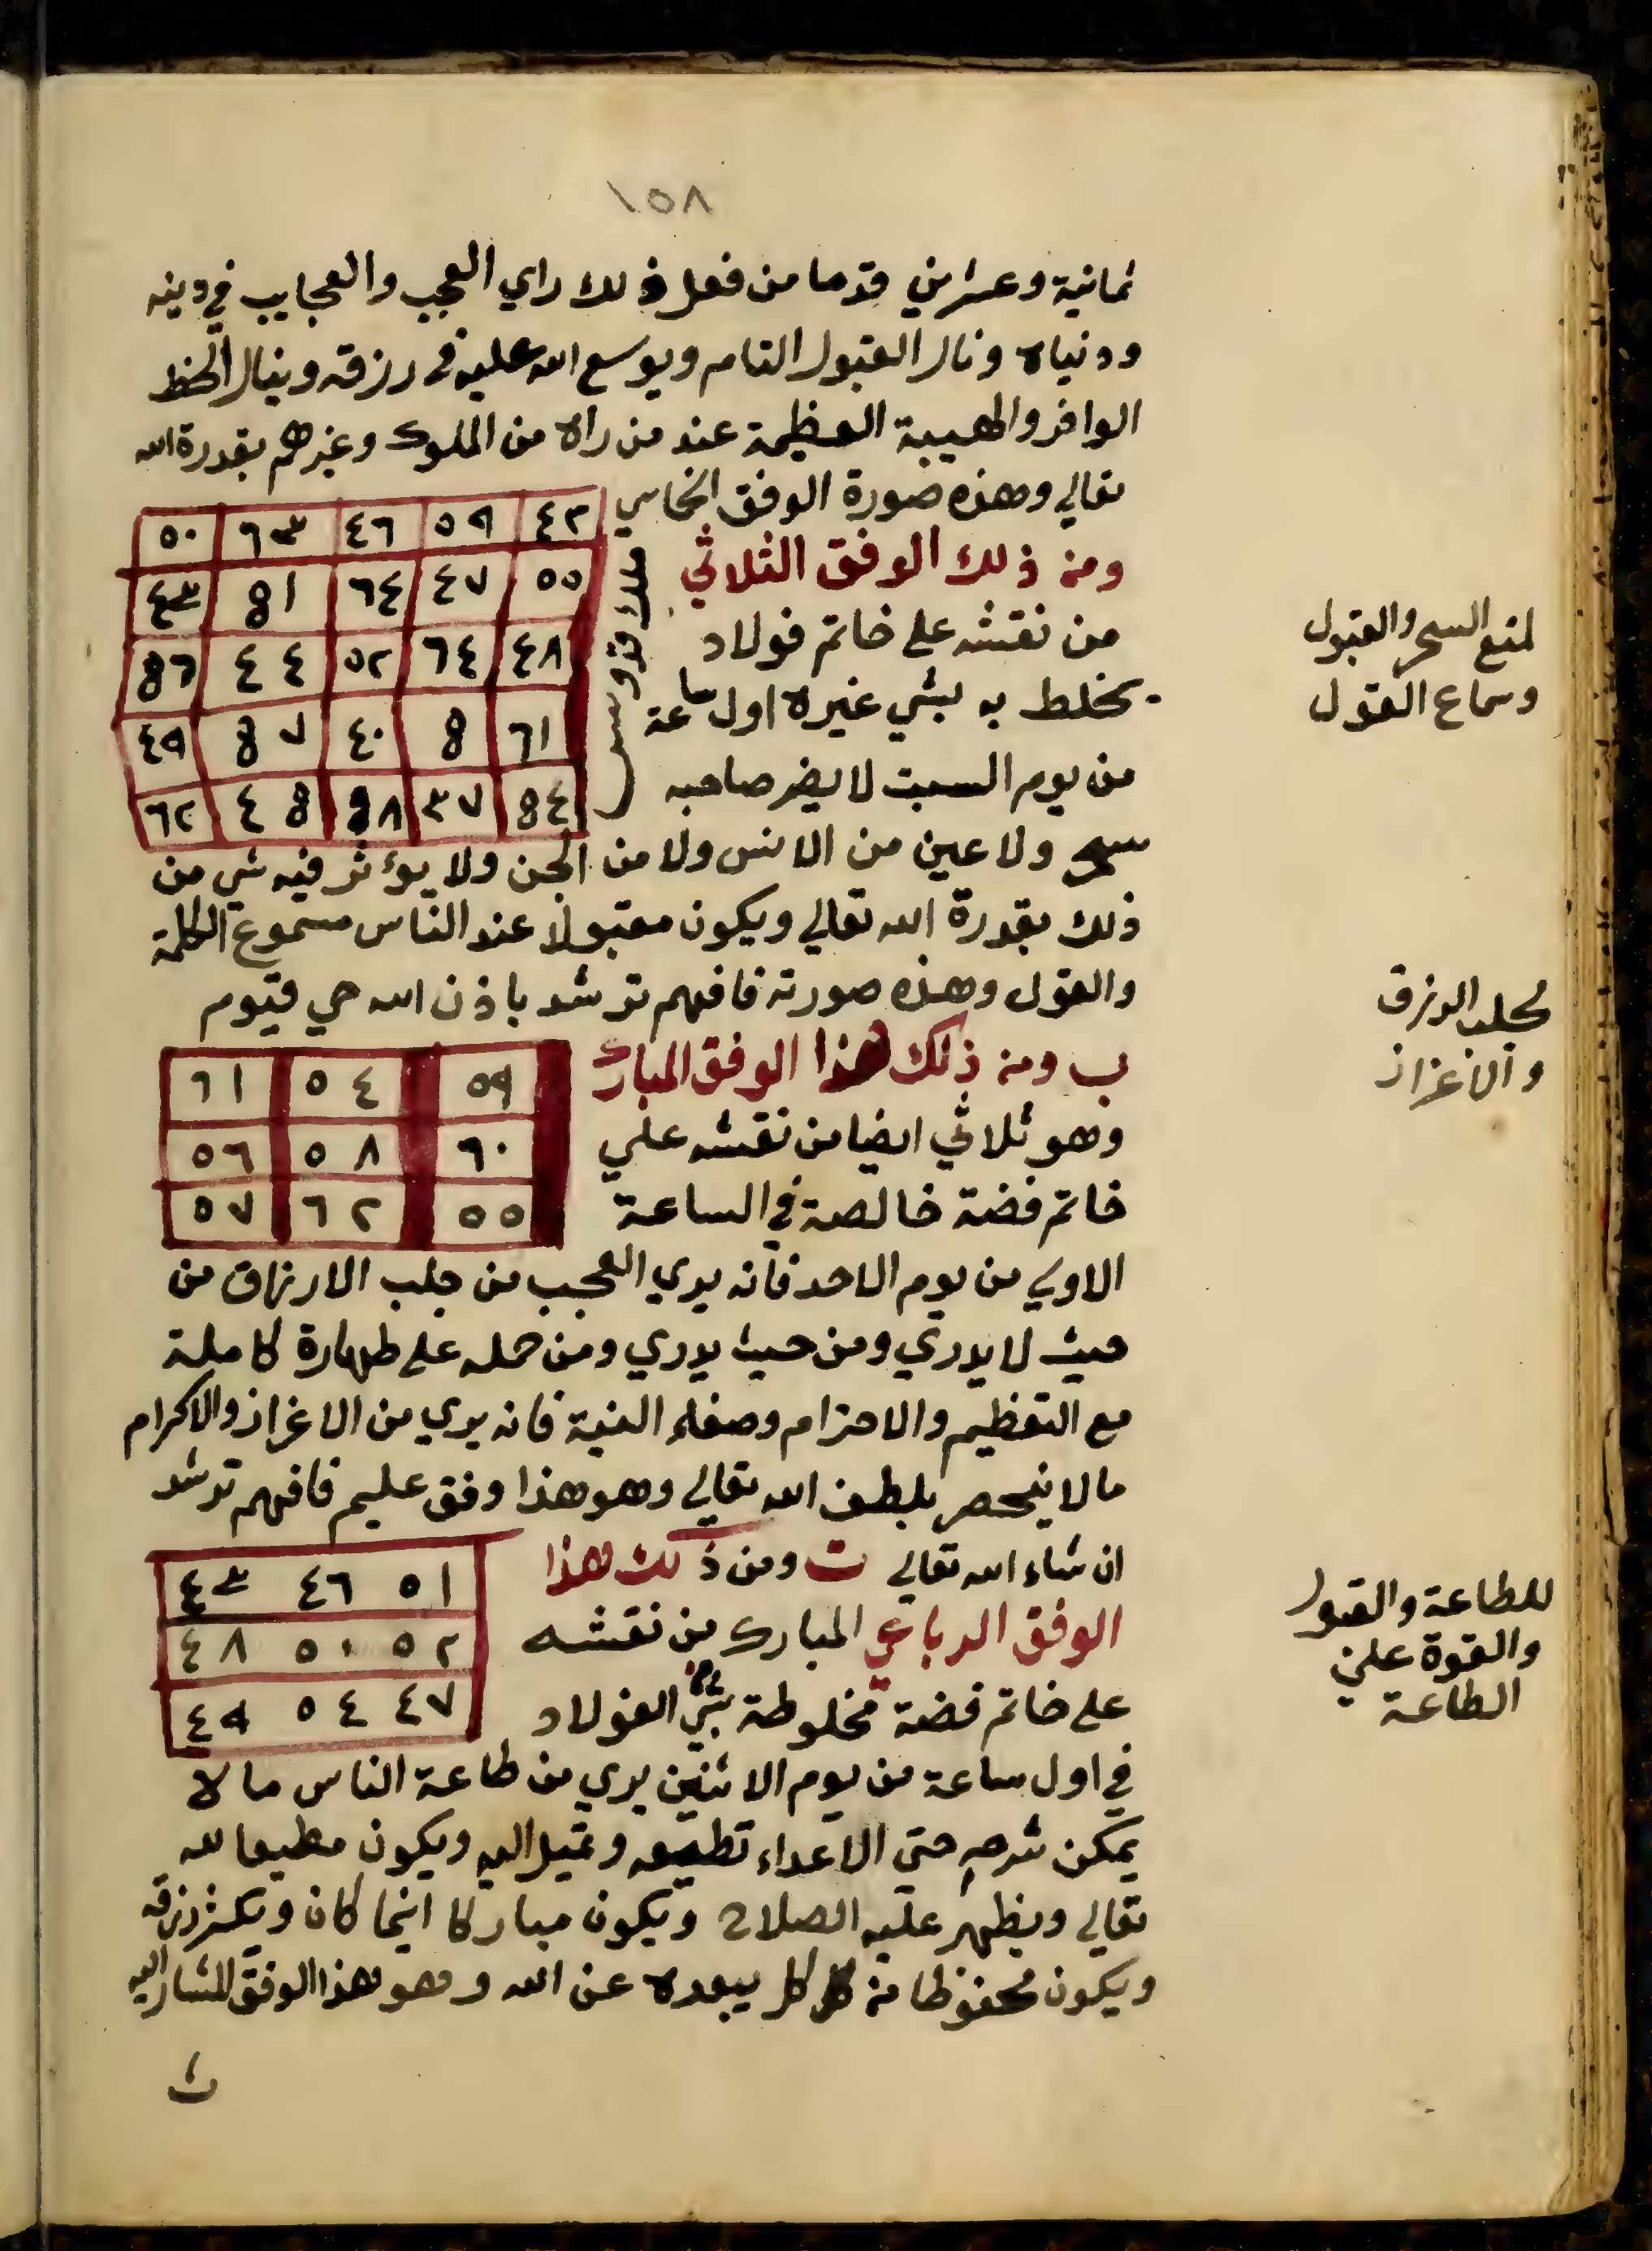 ١٥٨
ثمانية وعشرين قدما من فعل ذلك راي العجب والعجايب في دينه
ودنياه ونال القبول التام ويوسع الله عليه في رزقه وينال الحظ
الوافر والهيبة العظيمة عند من راه من الملوك وغيرهم بقدرة الله
تعالي وهذه صورة الوفق الخماسي
٤٢ ٥٩ ٤٦ ٦٣ ٥٠
٥٥ ٤٧ ٦٤ 8١ ٤٣
٤٨ ٦٤ ٥٢ ٤٤ 8٦
٦١ 8 ٤٠ 8٧ ٤٩
8٤ ٣٧ 8٨ ٤8 ٦٢
ملك قدوس
ومن ذلك الوفق الثلاثي
من نقشه علي خاتم فولاد
يخلط به بشي غيره اول ساعة
من يوم السبت لا يضر صاحبه
سحر ولا عين من الانس ولا من الجن ولا يؤثر فيه شي من
ذلك بقدرة الله تعالي ويكون مقبولا عند الناس مسموع الكلمة
والقول وهذه صورته فافهم ترشد باذن الله حي قيوم
لمنع السحر والقبول
وسماع القول
ب ومن ذلك هذا الوفق المبارك
٥٩ ٥٤ ٦١
٦٠ ٥٨ ٥٦
٥٥ ٦٢ ٥٧
وهو ثلاثي ايضا من نقشه علي
خاتم فضة خالصة في الساعة
الاولي من يوم الاحد فانه يري العجب من جلب الارزاق من
حيث لا يدري ومن حيث يدري ومن حمله علي طهارة كاملة
مع التعظيم والاحترام وصفاء النية فانه يري من الاعزاز والاكرام
ما لا ينحصر بلطف الله تعالي وهو هذا وفق عليم فافهم ترشد
لجلب الرزق
والاعزاز
ان شاء الله تعالي ت ومن ذلك هذا
٥١ ٤٦ ٤٣
٥٢ ٥٠ ٤٨
٤٧ ٥٤ ٤٩
الوفق الرباعي المبارك من نقشه
علي خاتم فضة مخلوطة بشي من الفولاد
في اول ساعة من يوم الاثنين يري من طاعة الناس ما لا
يمكن شرحه حتي الاعداء تطيعه وتميل اليه ويكون مطيعا لله
تعالي ويظهر عليه الصلاح ويكون مباركا اينما كان ويكثر رزقه
ويكون محفوظا من كل كل يبعده عن الله وهو هذا الوفق المشار اليه
للطاعة والقبول
والقوة علي
الطاعة
ث